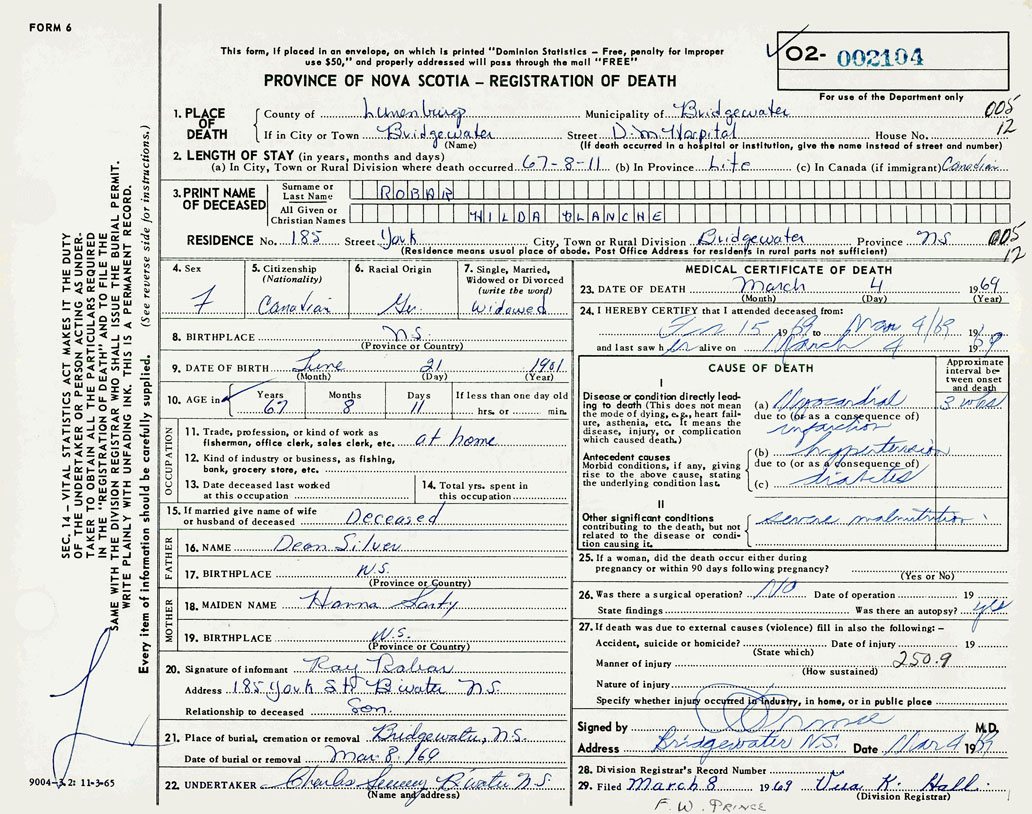 FORM 6
This form, if placed in an envelope, on which is printed "Dominion Statistics – Free, penalty for improper
use $50," and properly addressed will pass through the mail "FREE"
O2- 002104
PROVINCE OF NOVA SCOTIA – REGISTRATION OF DEATH
For use of the Department only
1. PLACE OF DEATH
County of Lunenburg Municipality of Bridgewater 005
If in City or Town Bridgewater Street D. M. Hospital House No. 12
(Name) (If death occurred in a hospital or institution, give the name instead of street and number)
2. LENGTH OF STAY (in years, months and days)
(a) In City, Town or Rural Division where death occurred 67-8-11 (b) In Province Life (c) In Canada (if immigrant) Canadian
3. PRINT NAME OF DECEASED
Surname or Last Name ROBAR
All Given or Christian Names HILDA BLANCHE
RESIDENCE No. 185 Street York City, Town or Rural Division Bridgewater Province N.S. 005
(Residence means usual place of abode. Post Office Address for residents in rural parts not sufficient) 12
4. Sex F
5. Citizenship (Nationality) Canadian
6. Racial Origin Gr.
7. Single, Married, Widowed or Divorced (write the word) Widowed
8. BIRTHPLACE N.S.
(Province or Country)
9. DATE OF BIRTH June 21 1901
(Month) (Day) (Year)
10. AGE in Years 67 Months 8 Days 11 If less than one day old hrs. or min.
OCCUPATION
11. Trade, profession, or kind of work as
fisherman, office clerk, sales clerk, etc. at home
12. Kind of industry or business, as fishing,
bank, grocery store, etc.
13. Date deceased last worked
at this occupation
14. Total yrs. spent in
this occupation
15. If married give name of wife
or husband of deceased Deceased
FATHER
16. NAME Dean Silver
17. BIRTHPLACE N.S.
(Province or Country)
MOTHER
18. MAIDEN NAME Hanna
19. BIRTHPLACE N.S.
(Province or Country)
20. Signature of informant Ray Robar
Address 185 York St B'water N.S.
Relationship to deceased Son.
21. Place of burial, cremation or removal Bridgewater, N.S.
Date of burial or removal Mar. 8./69
22. UNDERTAKER Charles B'water N.S.
(Name and address)
MEDICAL CERTIFICATE OF DEATH
23. DATE OF DEATH March 4 1969
(Month) (Day) (Year)
24. I HEREBY CERTIFY that I attended deceased from:
15 1969 to Mar 4/69 19
and last saw her alive on March 4 1969
CAUSE OF DEATH
Approximate interval between onset and death
I
Disease or condition directly leading
to death (This does not mean
the mode of dying, e.g., heart failure,
asthenia, etc. It means the
disease, injury, or complication
which caused death.)
(a) Myocardial 3 wks
due to (or as a consequence of)
infarction
Antecedent causes
Morbid conditions, if any, giving
rise to the above cause, stating
the underlying condition last.
(b) hypertension
due to (or as a consequence of)
(c) diabetes
II
Other significant conditions
contributing to the death, but not
related to the disease or condition
causing it.
severe malnutrition
25. If a woman, did the death occur either during
pregnancy or within 90 days following pregnancy?
(Yes or No)
26. Was there a surgical operation? No Date of operation 19
State findings Was there an autopsy? yes
27. If death was due to external causes (violence) fill in also the following: –
Accident, suicide or homicide? Date of injury 19
(State which)
Manner of injury 250.9
(How sustained)
Nature of injury
Specify whether injury occurred in industry, in home, or in public place
Signed by Prince M.D.
Address Bridgewater N.S. Date Mar 4 1969
28. Division Registrar's Record Number
29. Filed March 8 1969 Vera K. Hall
(Division Registrar)
F. W. PRINCE
SEC. 14 – VITAL STATISTICS ACT MAKES IT THE DUTY
OF THE UNDERTAKER OR PERSON ACTING AS UNDER-
TAKER TO OBTAIN ALL THE PARTICULARS REQUIRED
IN THE "REGISTRATION OF DEATH" AND TO FILE THE
SAME WITH THE DIVISION REGISTRAR WHO SHALL ISSUE THE BURIAL PERMIT.
WRITE PLAINLY WITH UNFADING INK. THIS IS A PERMANENT RECORD.
Every item of information should be carefully supplied. (See reverse side for instructions.)
9004-3.2: 11-3-65